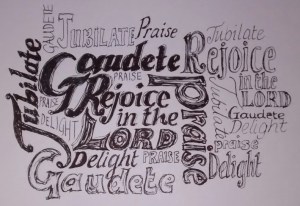 GAUDETE
JUBILATE
Praise
Jubilate
Jubilate
Gaudete
Rejoice
in the
LORD
PRAISE
Rejoice
in the
LORD
praise
Jubilate
PRAISE
DELIGHT
Gaudete
Delight
Delight
PRAISE
praise
Delight
Gaudete